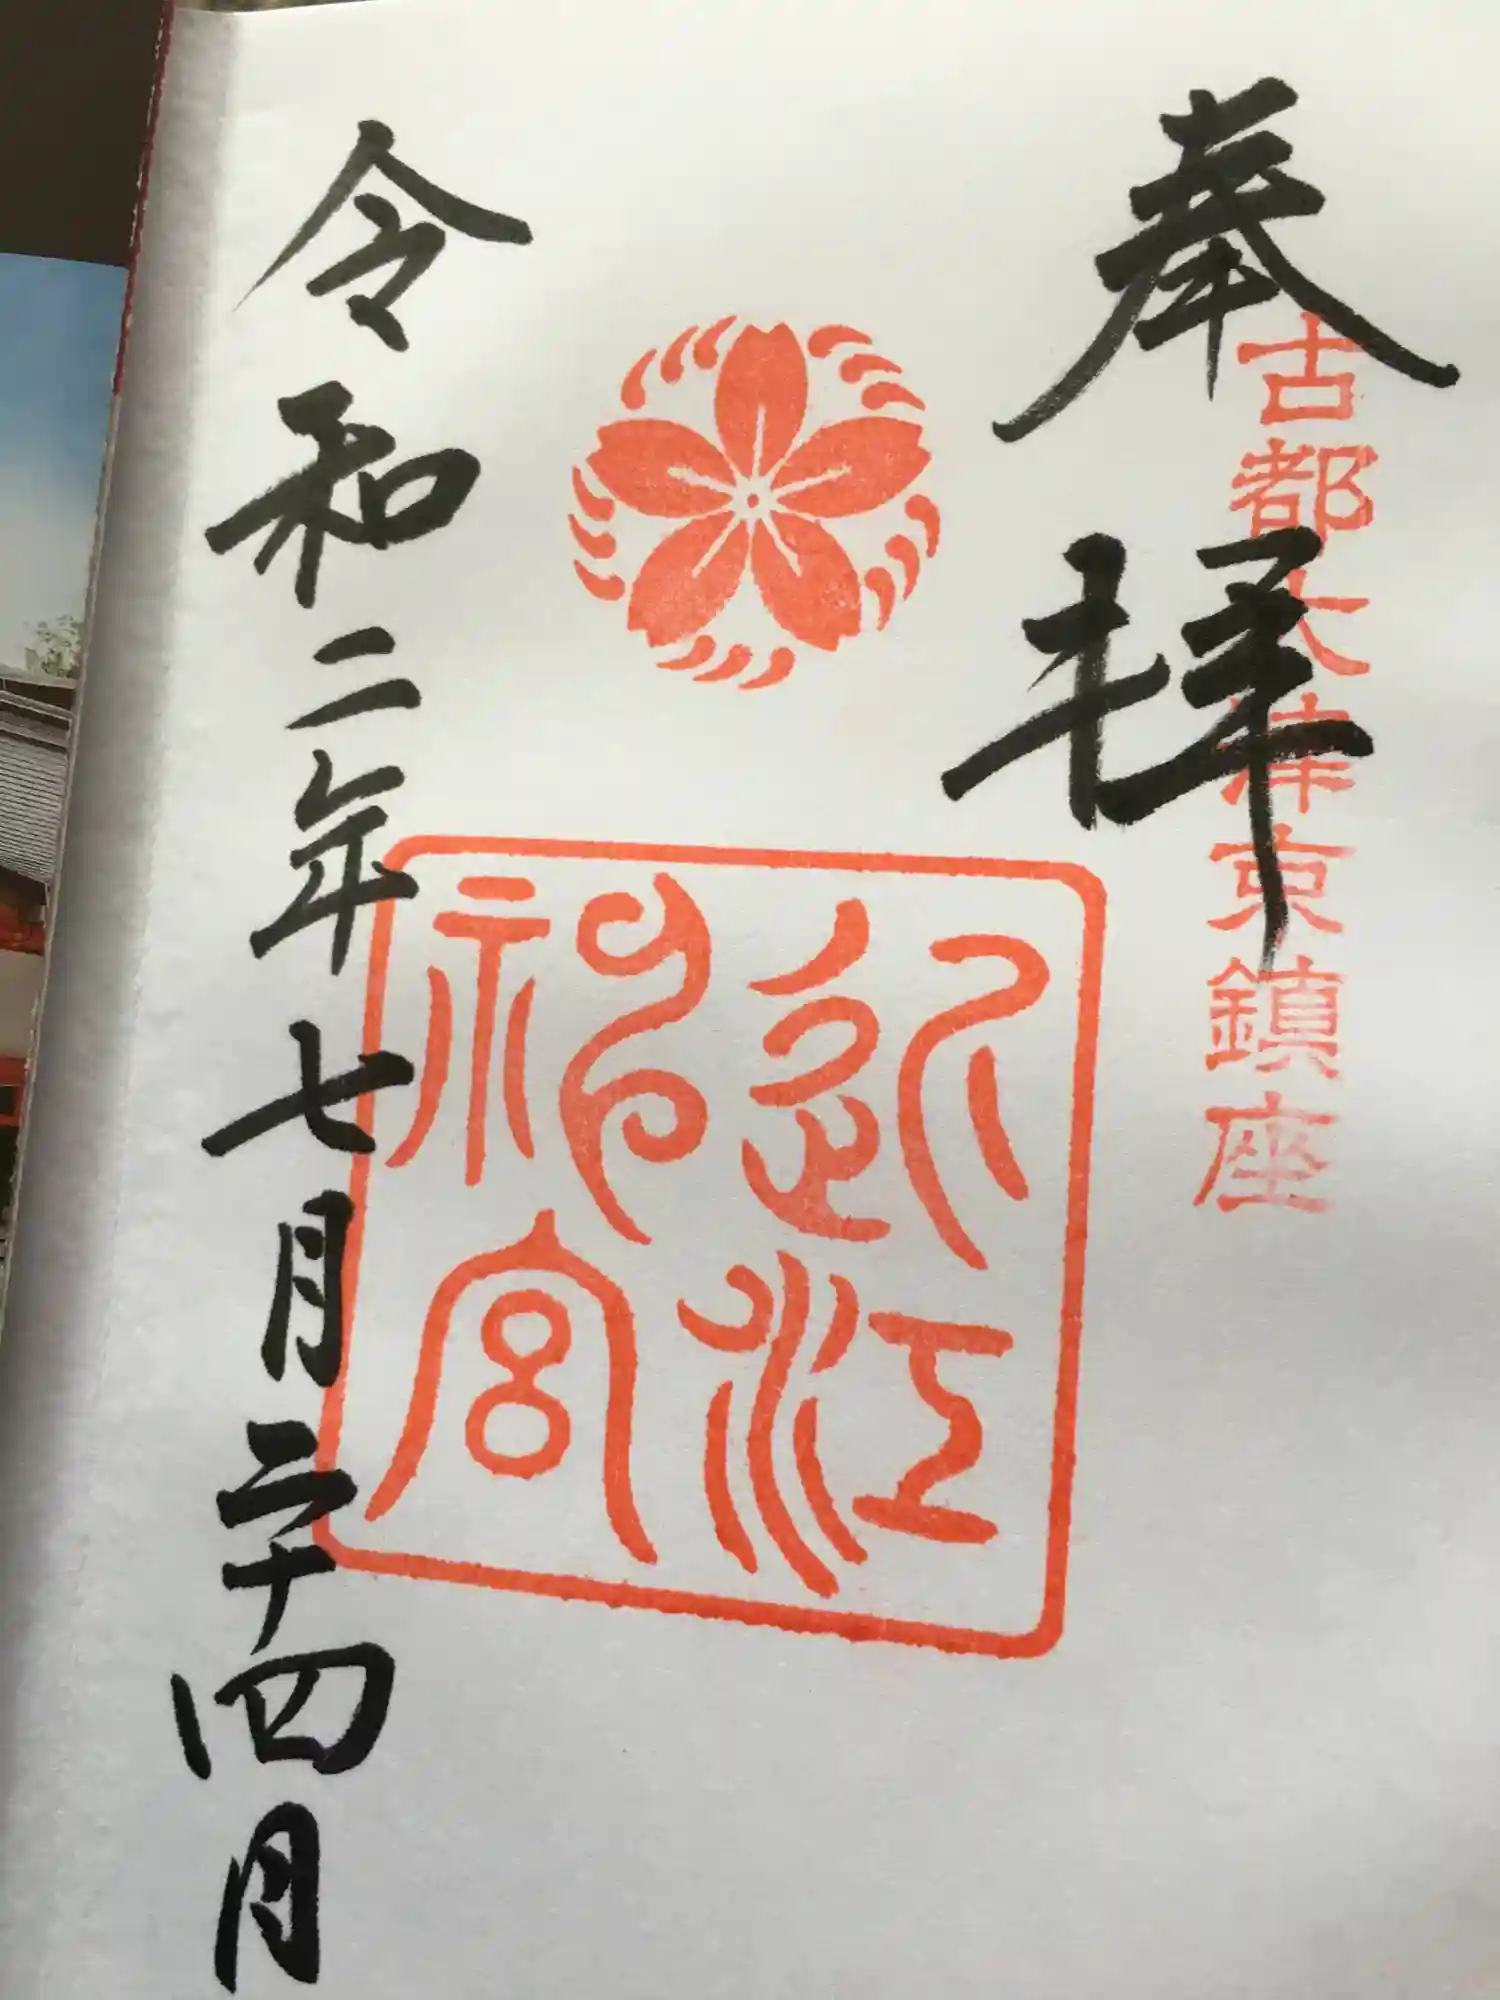 古都大津京鎮座
奉拝
近江
神宮
令和二年七月二十四日